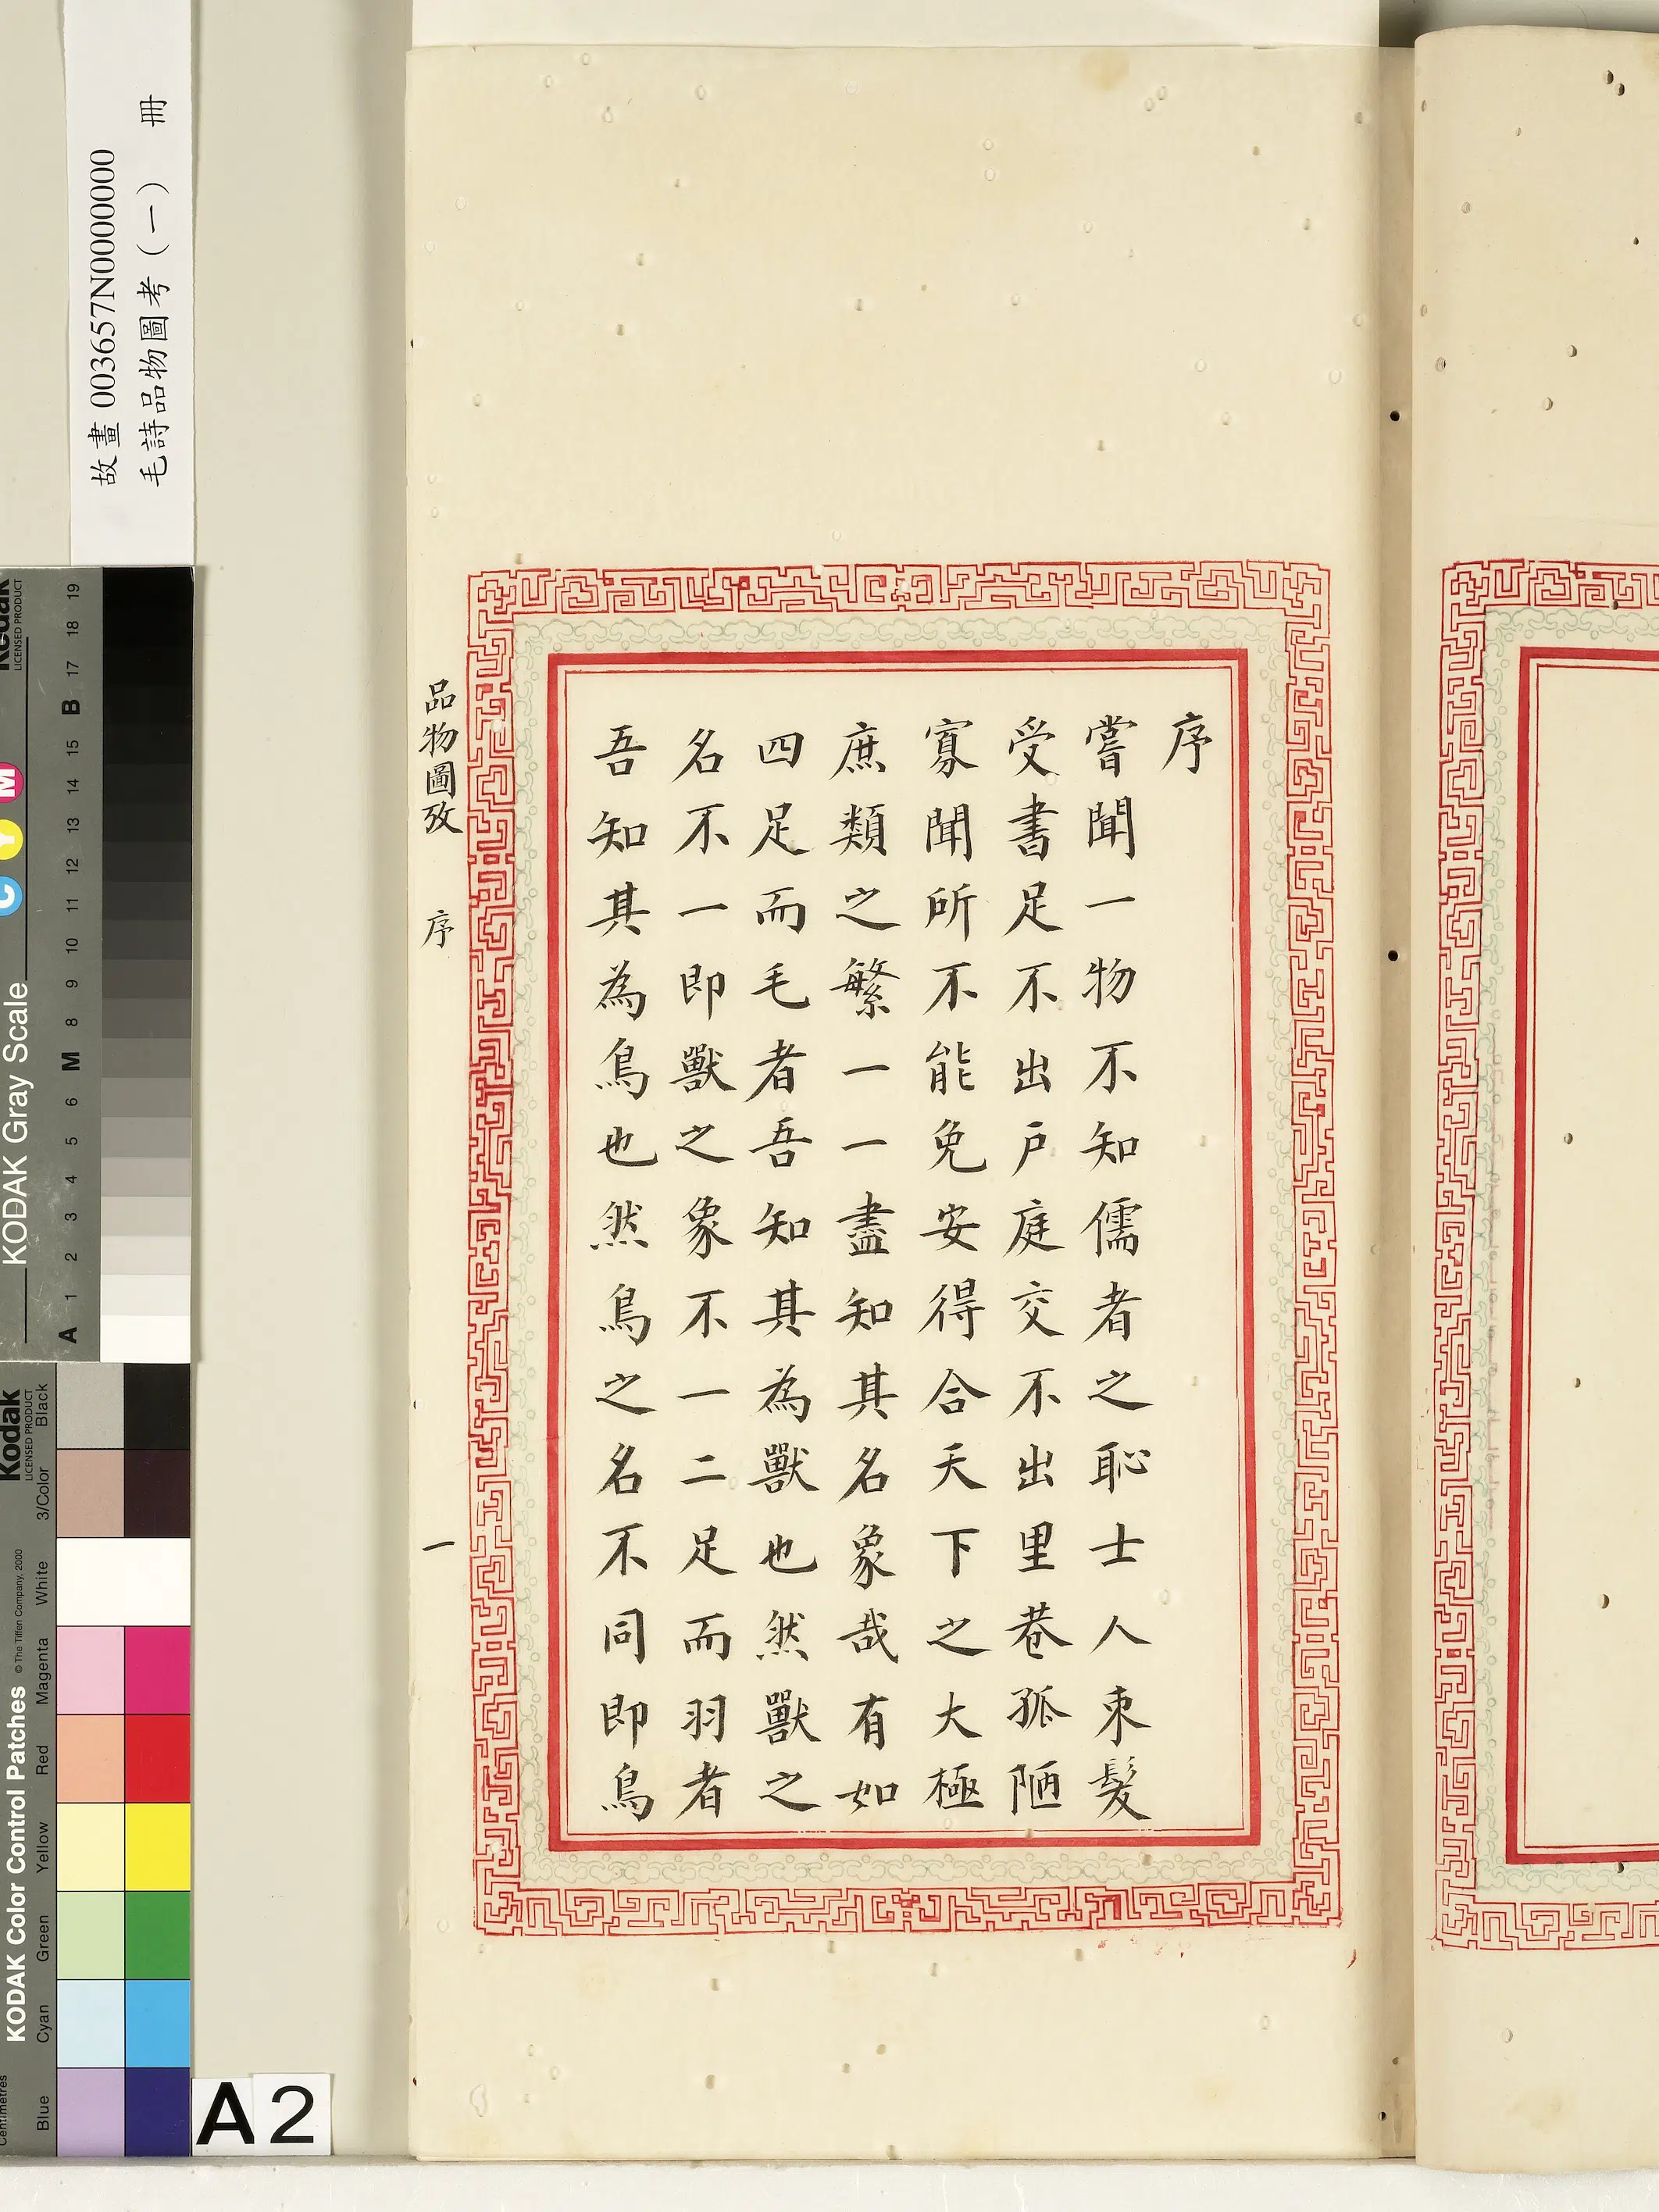 序
嘗聞一物不知儒者之恥士人束髮
受書足不出戶庭交不出里巷孤陋
寡聞所不能免安得合天下之大極
庶類之繁一一盡知其名象哉有如
四足而毛者吾知其為獸也然獸之
名不一即獸之象不一二足而羽者
吾知其為鳥也然鳥之名不同即鳥
品物圖攷 序 一
故畫 003657N000000000
毛詩品物圖考（一） 冊
KODAK Gray Scale
Kodak
LICENSED PRODUCT
C Y M
A 1 2 3 4 5 6 M 8 9 10 11 12 13 14 15 B 17 18 19
KODAK Color Control Patches
© The Tiffen Company, 2000
Kodak
LICENSED PRODUCT
Centimetres
Blue Cyan Green Yellow Red Magenta White 3/Color Black
A2